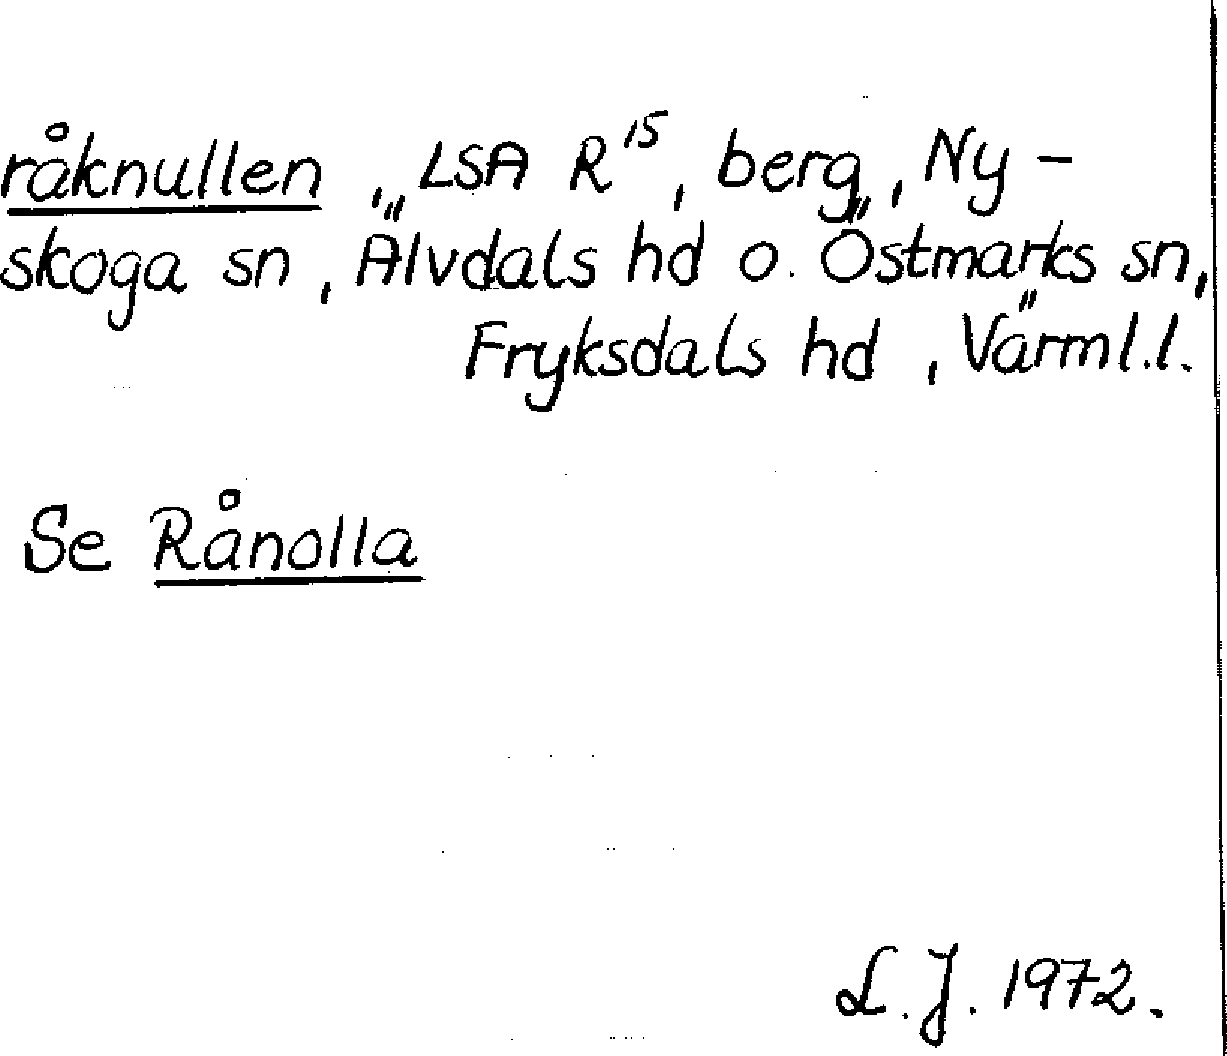 råknullen, LSA R15, berg, Ny-
skoga sn, Älvdals hd o. Östmarks sn,
Fryksdals hd, Värml.l.
Se Rånolla
L.J. 1972.